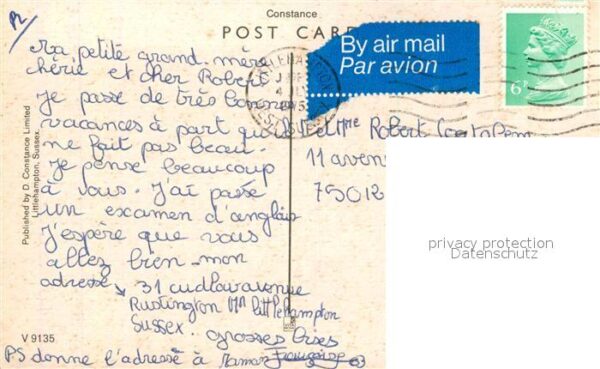 Constance
POST CARD
By air mail
Par avion
6P
Ma petite grand-mère
chérie et cher Robert
Je passe de très bonnes
vacances à part qu'il
ne fait pas beau.
Je pense beaucoup
à vous. J'ai passé
un examen d'anglais
J'espère que vous
allez bien - mon
adresse
31 cudlow avenue
Rustington Nr littlehampton
Sussex.
grosses bises
PS donne l'adresse à Maman Françoise
et Mme Robert
11 avenue
75012
Published by D. Constance Limited
Littlehampton, Sussex.
V 9135
privacy protection
Datenschutz